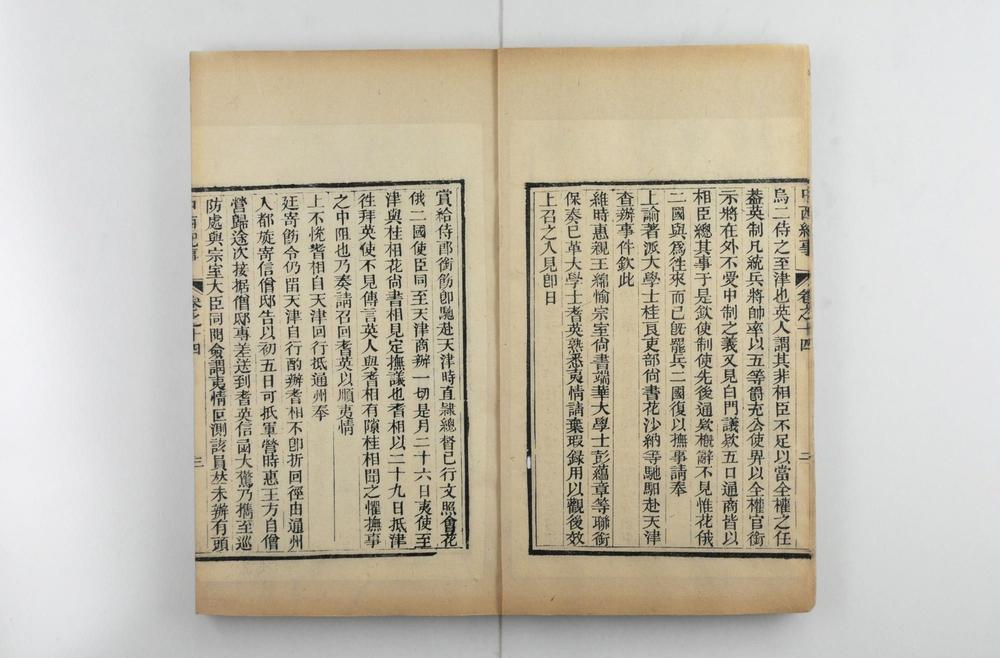 中西紀事
卷之十四
二
烏二侍之至津也英人謂其非相臣不足以當全權之任
蓋英制凡統兵將帥率以五等爵充公使畀以全權官銜
示將在外不受中制之義又見白門議欵五口通商皆以
相臣總其事于是欽使制使先後通欵概辭不見惟花俄
二國與爲徃來而已旣罷兵二國復以撫事請奉
上諭著派大學士桂良吏部尙書花沙納等馳駰赴天津
查辦事件欽此
維時惠親王綿愉宗室尙書端華大學士彭蘊章等聯銜
保奏已革大學士耆英熟悉夷情請棄瑕録用以觀後效
上召之入見卽日
賞給侍郎銜飭卽馳赴天津時直隸總督已行文照會花
俄二國使臣同至天津商辦一切是月二十六日夷使至
津與桂相花尙書相見定撫議也耆相以二十九日抵津
徃拜英使不見傳言英人與耆相有隙桂相聞之懼撫事
之中阻也乃奏請召回耆英以順夷情
上不悅耆相自天津回行抵通州奉
廷寄飭令仍留天津自行酌辦耆相不卽折回徑由通州
入都旋寄信僧邸告以初五日可抵軍營時惠王方自僧
營歸途次接据僧邸專差送到耆英信函大驚乃携至巡
防處與宗室大臣同閱僉謂夷情叵測該員玆未辦有頭
中西紀事
卷之十四
三